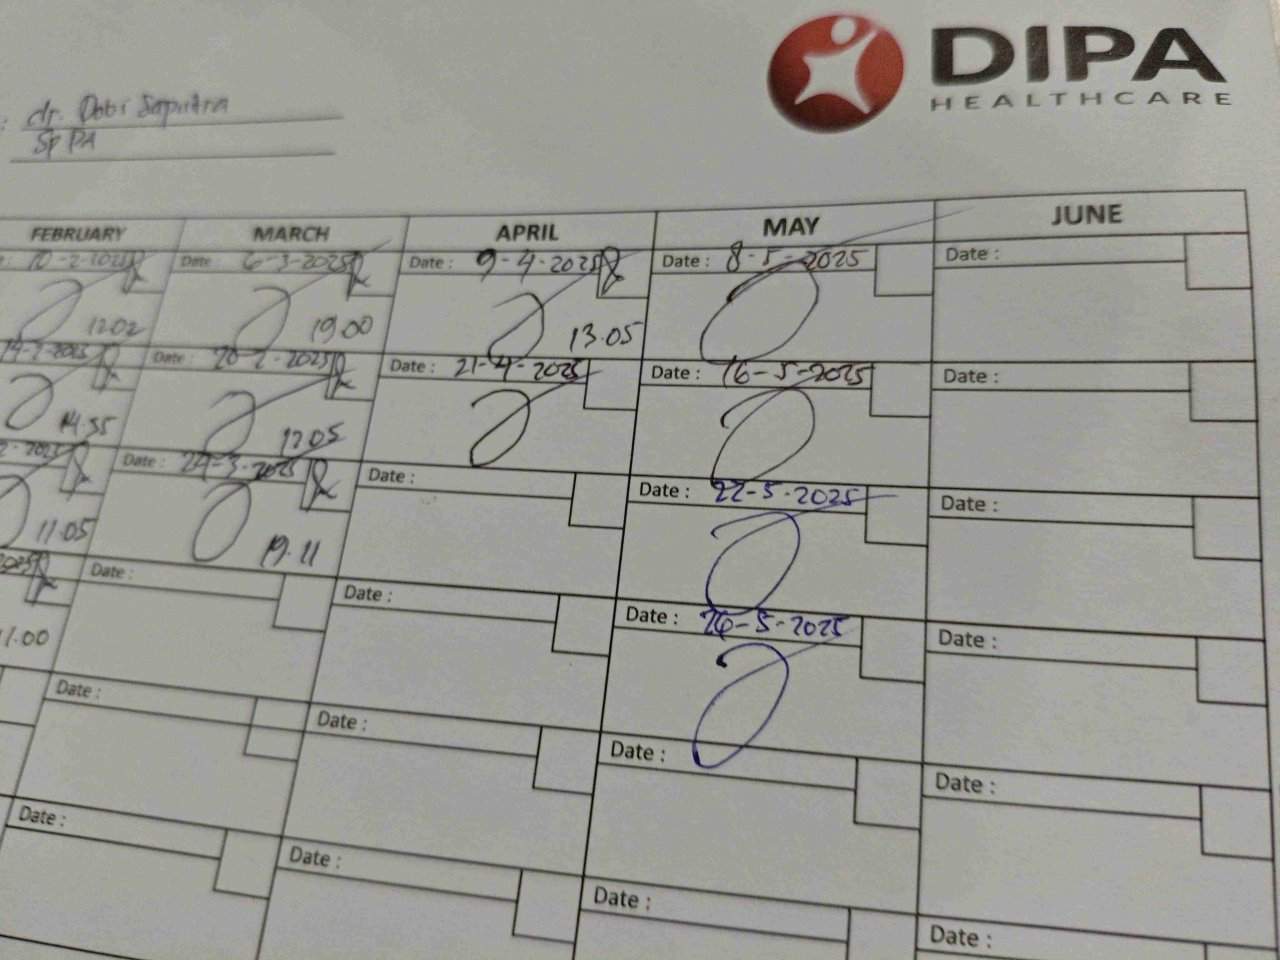 DIPA
HEALTHCARE
: dr. Dobi Saputra
Sp PA
FEBRUARY MARCH APRIL MAY JUNE
: 10-2-2025 Date : 6-3-2025 Date : 9-4-2025 Date : 8-5-2025 Date :
12.02 19.00 13.05
Date : Date : 21-4-2025 Date : 16-5-2025 Date :
14.55 12.05
Date : 24-3-2025 Date : Date : 22-5-2025 Date :
11.05 19.11
Date : Date : Date : 26-5-2025 Date :
11.00
Date : Date : Date : Date :
Date : Date : Date : Date :